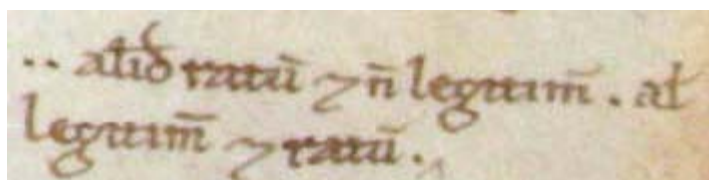 .. aliđ ratū ⁊ n̄ legitim̄. al̄
legitim̄ ⁊ ratū.